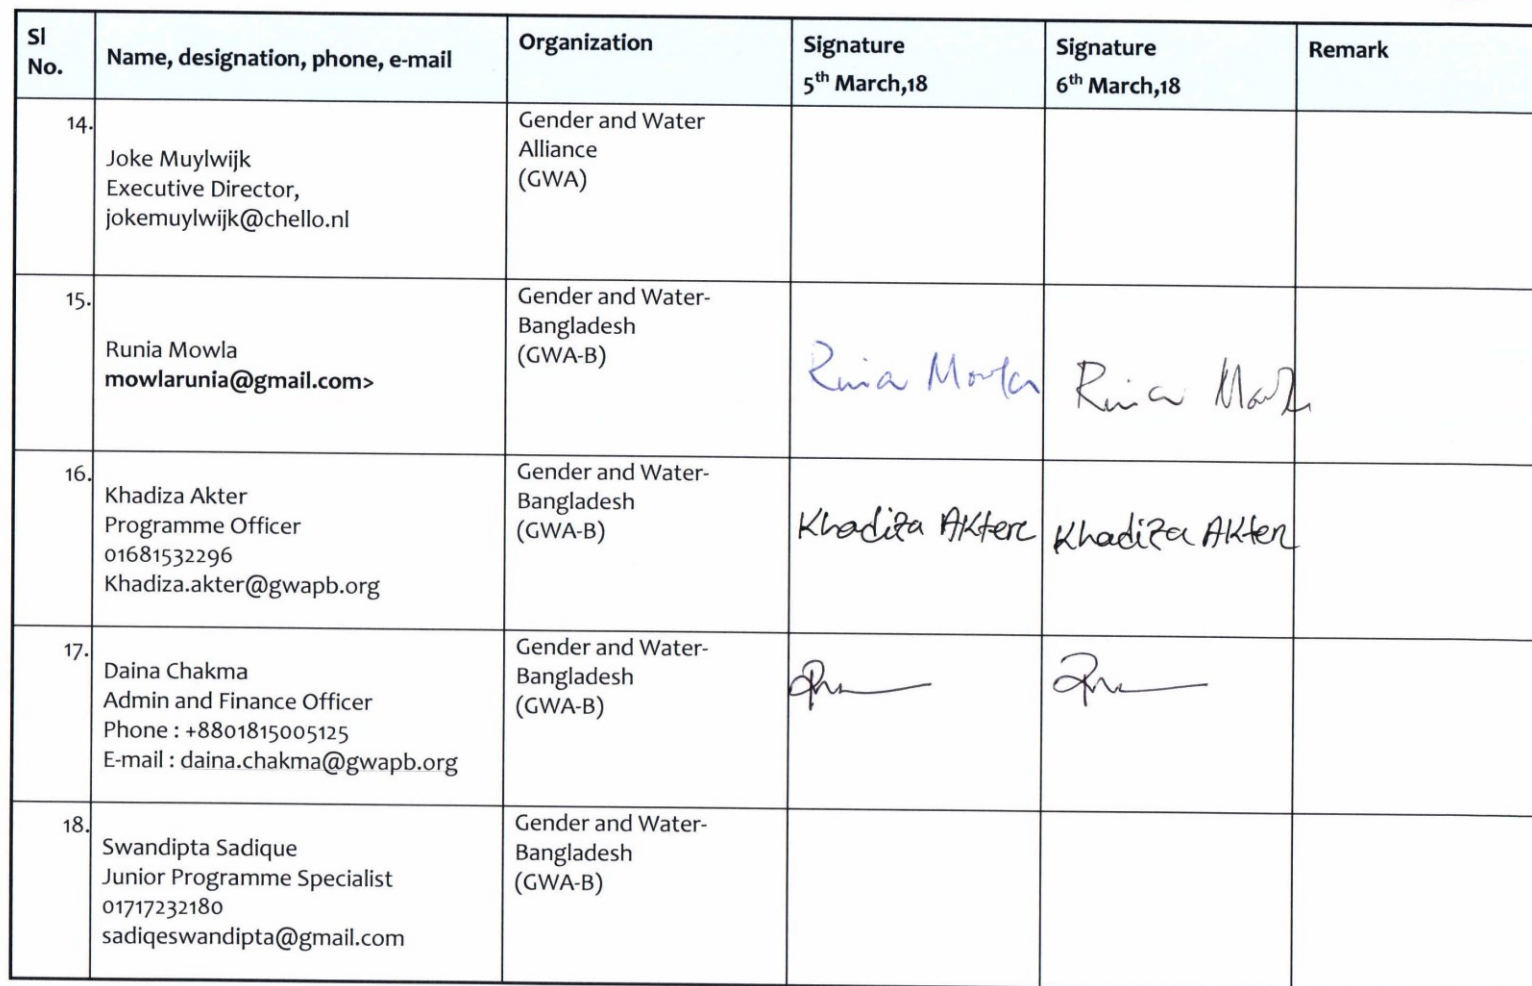 Sl No.
Name, designation, phone, e-mail
Organization
Signature
5th March,18
Signature
6th March,18
Remark
14.
Joke Muylwijk
Executive Director,
jokemuylwijk@chello.nl
Gender and Water
Alliance
(GWA)
15.
Runia Mowla
mowlarunia@gmail.com>
Gender and Water-
Bangladesh
(GWA-B)
Runia Mowla
Runia Mowla
16.
Khadiza Akter
Programme Officer
01681532296
Khadiza.akter@gwapb.org
Gender and Water-
Bangladesh
(GWA-B)
Khadiza AKter
Khadiza AKter
17.
Daina Chakma
Admin and Finance Officer
Phone : +8801815005125
E-mail : daina.chakma@gwapb.org
Gender and Water-
Bangladesh
(GWA-B)
18.
Swandipta Sadique
Junior Programme Specialist
01717232180
sadiqeswandipta@gmail.com
Gender and Water-
Bangladesh
(GWA-B)